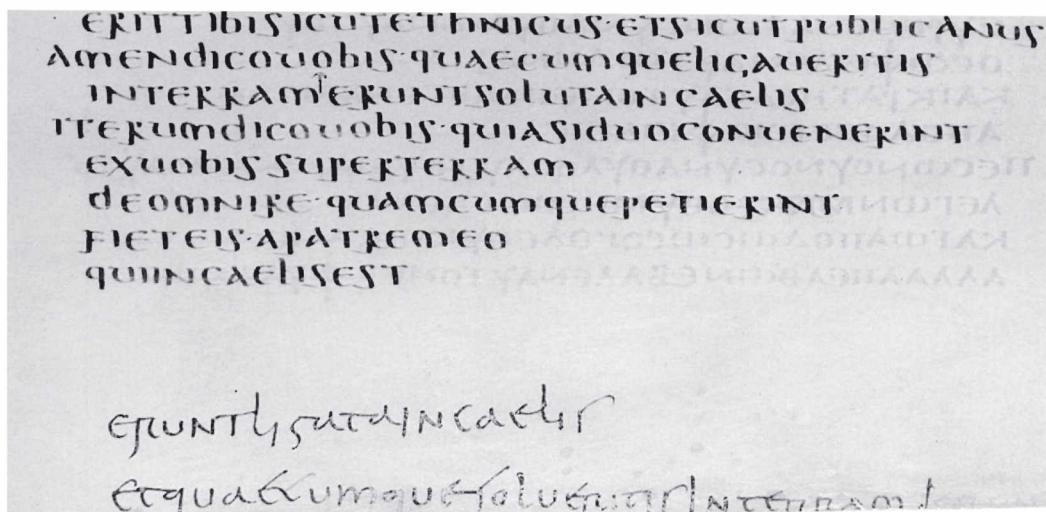 ERITTIBISICUTETHNICUS·ETSICUTPUBLICANUS
AMENDICOUOBIS·QUAECUMQUELIGAUERITIS
INTERRAM ERUNTSOLUTAINCAELIS
ITERUMDICOUOBIS·QUIASIDUOCONUENERINT
EXUOBISSUPERTERRAM
DEOMNIRE·QUAMCUMQUEPETIERINT
FIETEIS·APATREMEO
QUIINCAELISEST
ERUNTLIGATAINCAELIS
ETQUAECUMQUESOLUERITISINTERRAM